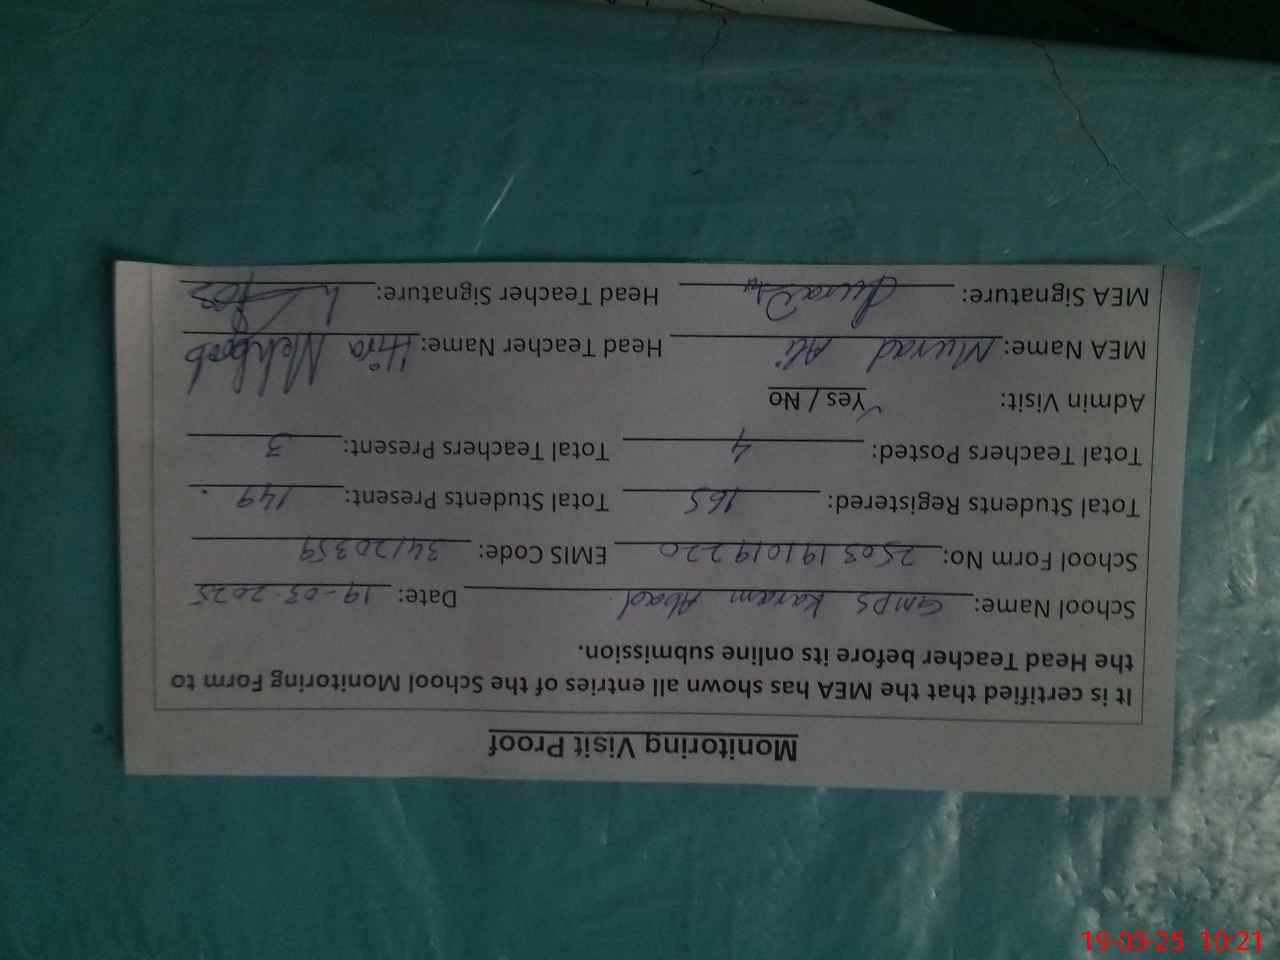 Monitoring Visit Proof
It is certified that the MEA has shown all entries of the School Monitoring Form to
the Head Teacher before its online submission.
School Name: GMPS Karam Abad Date: 19-03-2025
School Form No: 2503191019220 EMIS Code: 34120359
Total Students Registered: 165 Total Students Present: 149
Total Teachers Posted: 4 Total Teachers Present: 3
Admin Visit: Yes / No
MEA Name: Murad Ali Head Teacher Name: Hira Mehboob
MEA Signature: Head Teacher Signature:
19-03-25 10:21